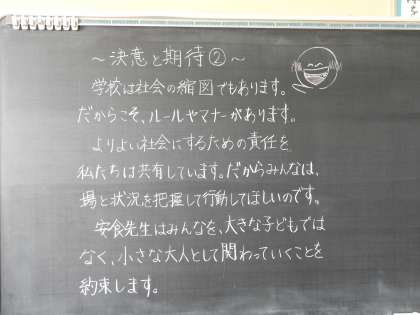 ～決意と期待②～
学校は社会の縮図でもあります。
だからこそ、ルールやマナーがあります。
よりよい社会にするための責任を
私たちは共有しています。だからみんなは、
場と状況を把握して行動してほしいのです。
安食先生はみんなを、大きな子どもでは
なく、小さな大人として関わっていくことを
約束します。